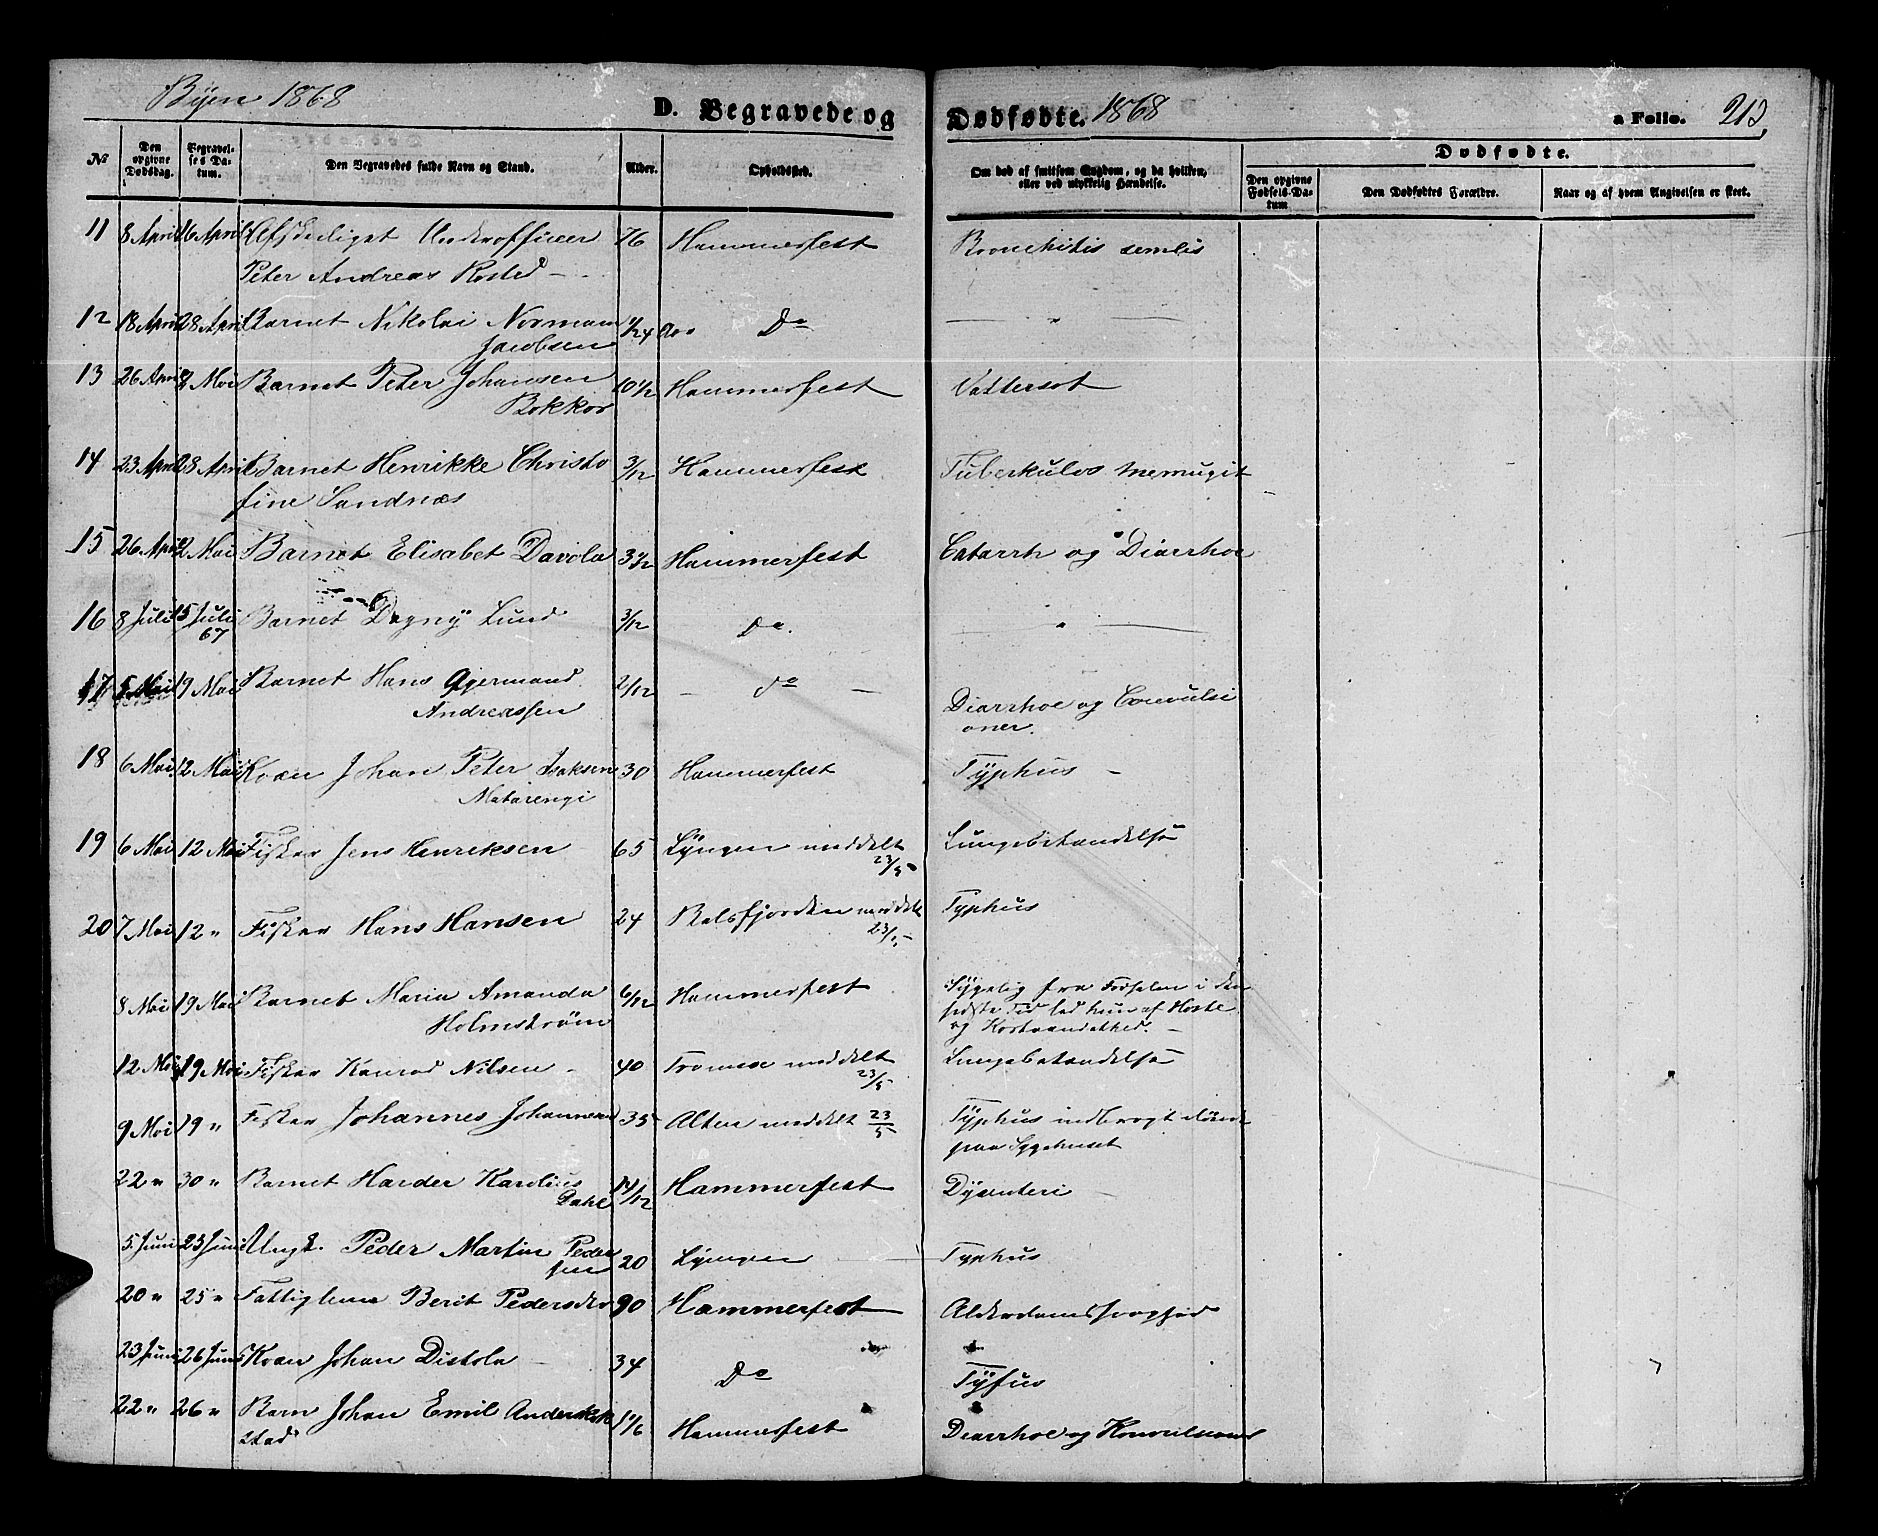 Byen 1868
D. Begravede og Dødfødte. 1868 a Folio. 212
№ Den opgivne Dødsdag. Begravelses Datum. Den Begravedes fulde Navn og Stand. Alder. Opholdssted. Om død af smitsom Sygdom, og da hvilken, eller ved ulykkelig Hændelse. Dødfødte.
Den opgivne Fødsels-Datum Den Dødfødtes Forældre. Naar og af hvem Angivelsen er skeet.
11 8 April 16 April Afskediget Underofficer 76 Hammerfest Bronchitis senilis
Peter Andreas Rosted
12 18 April 28 April Barnet Nikolai Normann 1/24 Aar Do — " —
Jacobsen
13 26 April 8 Mai Barnet Peter Johansen 10 1/2 Hammerfest Vattersot
Bokkor
14 23 April 28 April Barnet Henrikke Christo 3/12 Hammerfest Tuberkulos
fine Sandnæs
15 26 April 2 Mai Barnet Elisabet Davola 3 1/2 Hammerfest Catarrh og Diarrhoe
16 8 Juli 15 Juli Barnet Dagny Lund 3/12 Do. — " —
67
17 5 Mai 19 Mai Barnet Hans Gjermand 2/12 — do — Diarrhoe og Convulsi
Andreassen oner.
18 6 Mai 12 Mai Kvæn Johan Peter Isaksen 30 Hammerfest Typhus —
Matarengi
19 6 Mai 12 Mai Fisker Jens Henriksen 65 Lyngen meddelt Lungebetændelse
23/5
20 7 Mai 12 " Fisker Hans Hansen 24 Balsfjorden meddelt Typhus
23/5
8 Mai 19 Mai Barnet Maria Amanda 6/12 Hammerfest Sygelig fra Fødselen i den
Holmstrøm sidste Tid led hun af Hoste
og Kortaandethed. —
12 Mai 19 Mai Fisker Konrad Nilsen 40 Tromsø meddelt Lungebetændelse
23/5
9 Mai 19 " Fisker Johannes Johannesen 35 Alten meddelt 23/5 Typhus indbragt døende
paa Sygehuset
22 " 30 " Barnet Harder Karolius 11/12 Hammerfest Dysenteri
Dahl
5 Juni 23 Juni Ungk. Peder Martin Peder 20 Lyngen Typhus
sen
20 " 25 " Fattiglem Berit Pedersdtr 90 Hammerfest Alderdomssvaghed
23 Juni 26 Juni Kvæn Johan Distola 34 Do Tyfus
22 " 26 " Barn Johan Emil Hammerfest Diarrhoe og
stad